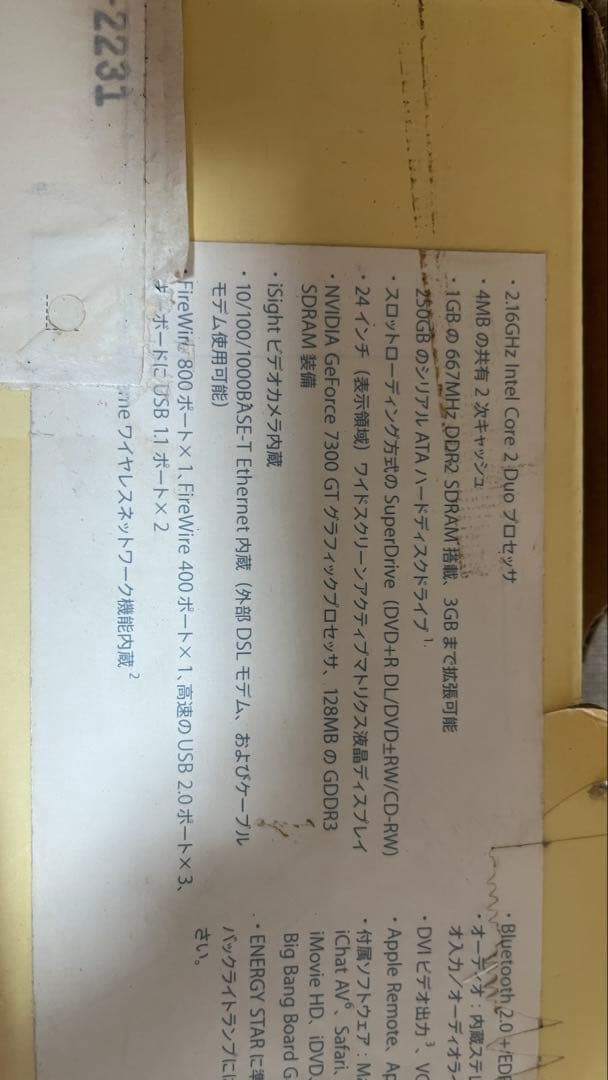 -2231
・2.16GHz Intel Core 2 Duo プロセッサ
・4MB の共有 2 次キャッシュ
・1GB の 667MHz DDR2 SDRAM 搭載、3GB まで拡張可能
250GB のシリアル ATA ハードディスクドライブ1.
・スロットローディング方式の SuperDrive（DVD+R DL/DVD±RW/CD-RW）
・24 インチ（表示領域）ワイドスクリーンアクティブマトリクス液晶ディスプレイ
・NVIDIA GeForce 7300 GT グラフィックプロセッサ、128MB の GDDR3
SDRAM 装備
・iSight ビデオカメラ内蔵
・10/100/1000BASE-T Ethernet 内蔵（外部 DSL モデム、およびケーブル
モデム使用可能）
・FireWire 800 ポート×1、FireWire 400 ポート×1、高速の USB 2.0 ポート×3、
ボードに USB 1.1 ポート×2
me ワイヤレスネットワーク機能内蔵2
・Bluetooth 2.0＋ED
・オーディオ：内蔵ステレ
オ入力／オーディオライ
・DVI ビデオ出力3、VG
・Apple Remote、Ap
・付属ソフトウェア：Ma
iChat AV6、Safari、
iMovie HD、iDVD、
Big Bang Board G
・ENERGY STAR に準
バックライトランプには
さい。